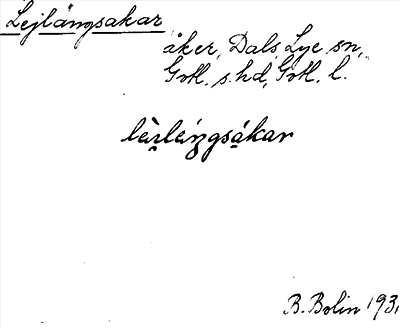 Lejlängsakar
åker, Dals Lye sn,
Gotl. s. hd, Gotl. l.
lèi̯leŋgsákar
B. Bolin 1931